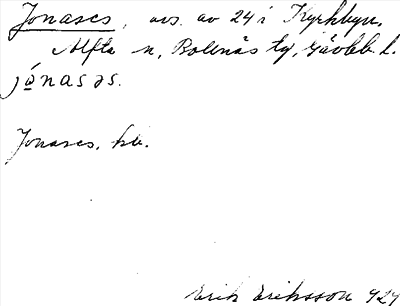 Jonases, avs. av 24 i Kyrkbyn,
Alfta sn, Bollnäs tg, Gävleb. l.
jónasəs.
Jonases, hb.
Erik Eriksson 1924